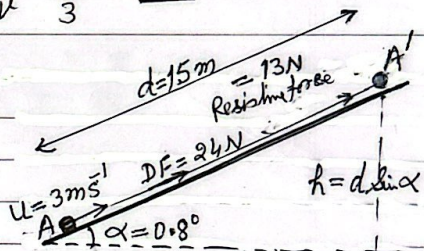 3
d=15m
= 13N
Resistive force
A'
DF = 24N
h = d sinα
U = 3ms⁻¹
A
α = 0.8°